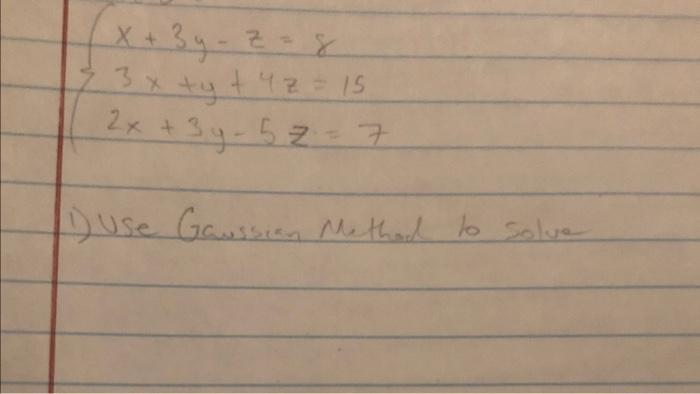 x + 3y - z = 8
3x + y + 4z = 15
2x + 3y - 5z = 7
1) Use Gaussian Method to solve